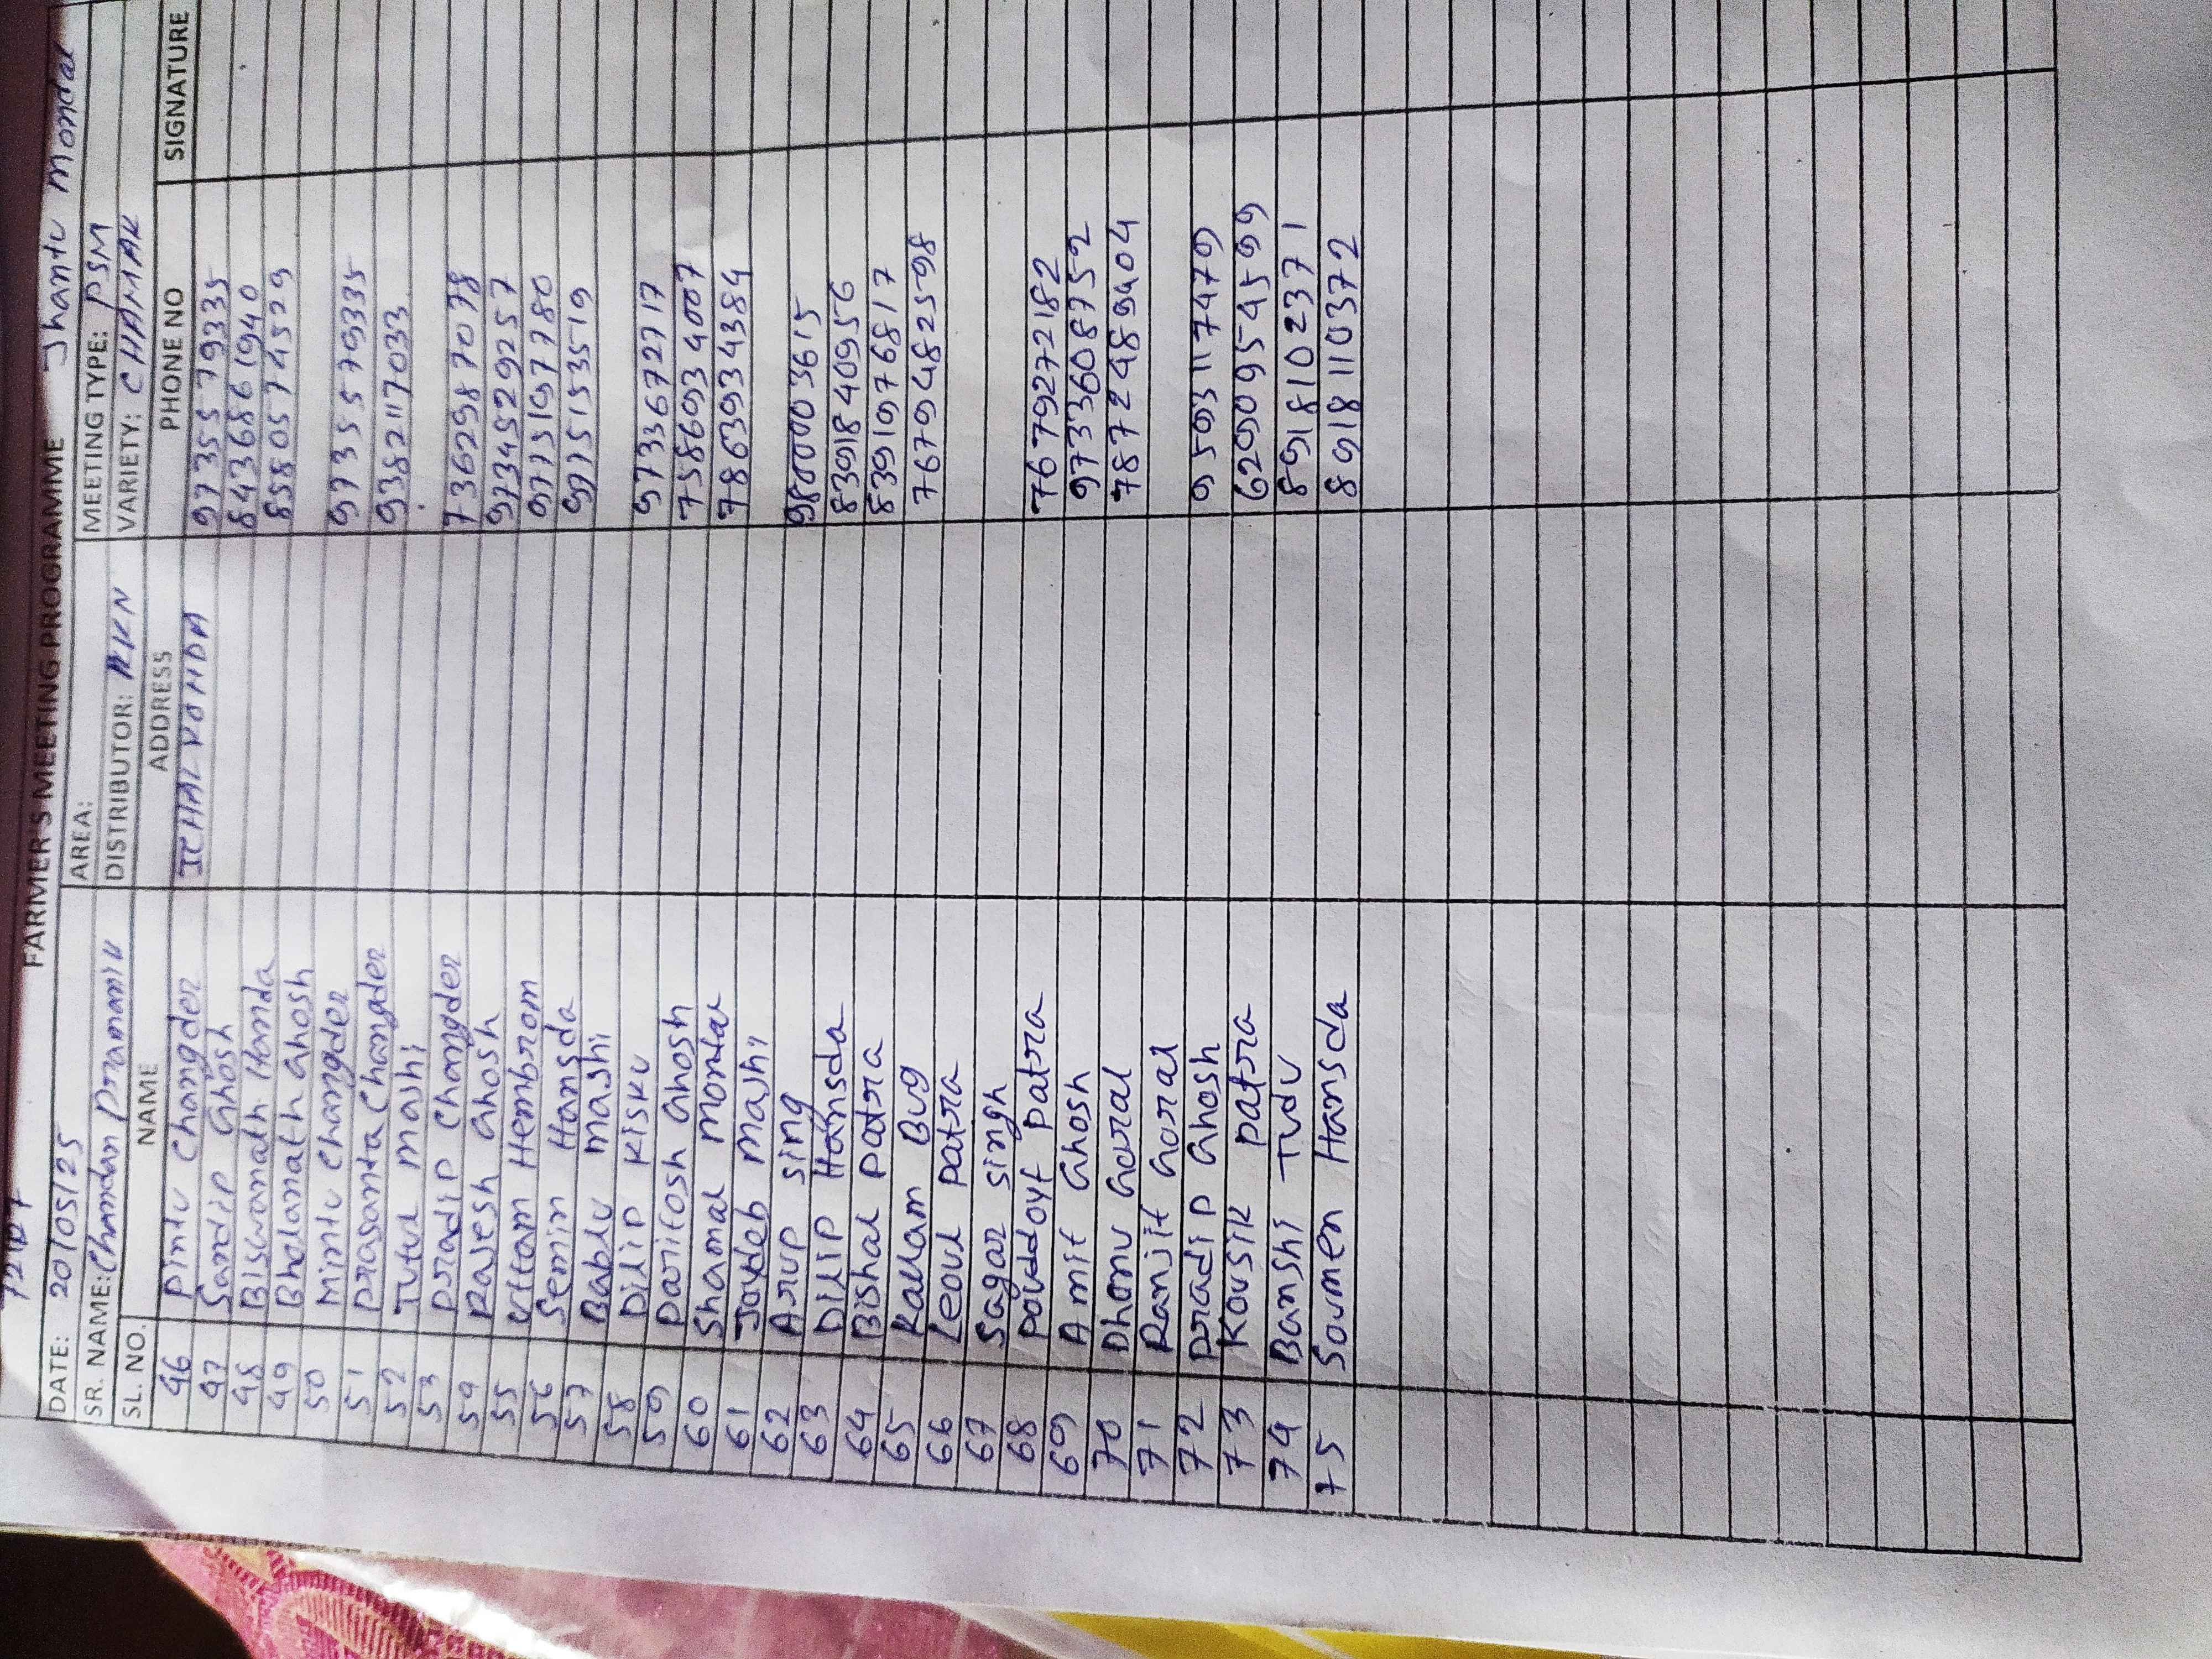 FARMER'S MEETING PROGRAMME Jhantu Mondal
DATE: 20/05/25 AREA: MEETING TYPE: PSM
SR. NAME: Chandan Pramanik DISTRIBUTOR: RKN VARIETY: CHAMAK
SL. NO. NAME ADDRESS PHONE NO SIGNATURE
46 Pintu Changder ICHAL KOHDA 9735579335
47 Sandip Ghosh 8436861940
48 Biswanath Handa 8580574529
49 Bholanath Ghosh
50 Mintu Changder 9735579335
51 Prasanta Changder 9382117033
52 Tutul Majhi
53 Pradip Changder 7362987078
54 Rajesh Ghosh 9734529257
55 Uttam Hembrom 9775197780
56 Semin Hansda 9775153519
57 Bablu Majhi
58 Dilip Kisku 9733672717
59 Paritosh Ghosh 7586934007
60 Shamal Mondal 7863934384
61 Joydeb Majhi
62 Arup Sing 9800003615
63 Dilip Hansda 8391840956
64 Bishal Patra 8391976817
65 Kallam Bug 7679482598
66 Leoul Patra
67 Sagar Singh
68 Patra 7679272182
69 Amit Ghosh 9733608752
70 Dhonu Goral 7872489404
71 Ranjit Goral
72 Pradip Ghosh 9593117479
73 Kousik Patra 6290954599
74 Banshi Tudu 8918102371
75 Soumen Hansda 8918110372